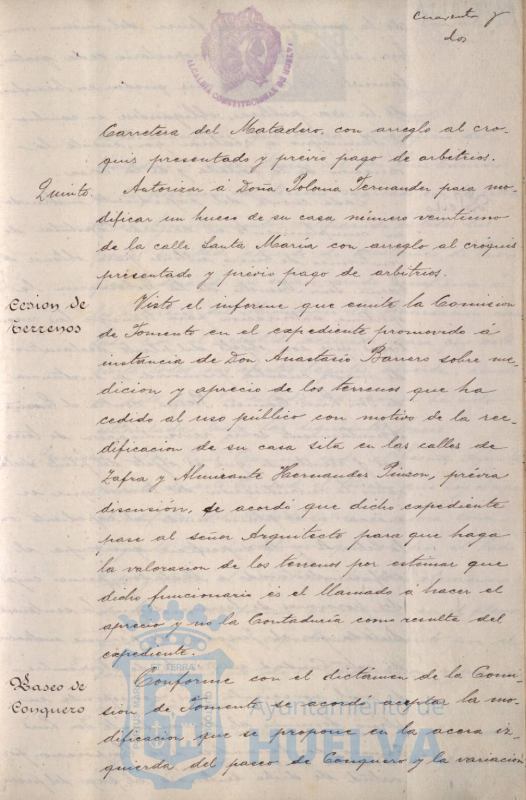 Cuarenta y
dos
ALCALDÍA CONSTITUCIONAL DE HUELVA
Carretera del Matadero, con arreglo al cro-
quis presentado y prévio pago de arbitrios.
Quinto. Autorizar á Doña Polonia Fernandez para mo-
dificar un hueco de su casa número veintiuno
de la calle Santa María con arreglo al cróquis
presentado y prévio pago de arbitrios.
Cesion de
Terrenos
Visto el informe que emite la Comision
de Fomento en el expediente promovido á
instancia de Don Anastasio Barrero sobre me-
dicion y aprecio de los terrenos que ha
cedido al uso público con motivo de la ree-
dificacion de su casa sita en las calles de
Zafra y Almirante Hernandez Pinzon, prévia
discusión, se acordó que dicho expediente
pase al señor Arquitecto para que haga
la valoracion de los terrenos por estimar que
dicho funcionario es el llamado á hacer el
aprecio y no la Contaduría como resulta del
expediente.
Paseo de
Conquero
Conforme con el dictámen de la Comi-
sion de Fomento se acordó aceptar la mo-
dificacion que se propone en la acera iz-
quierda del paseo de Conquero y la variacion
Ayuntamiento de
HUELVA